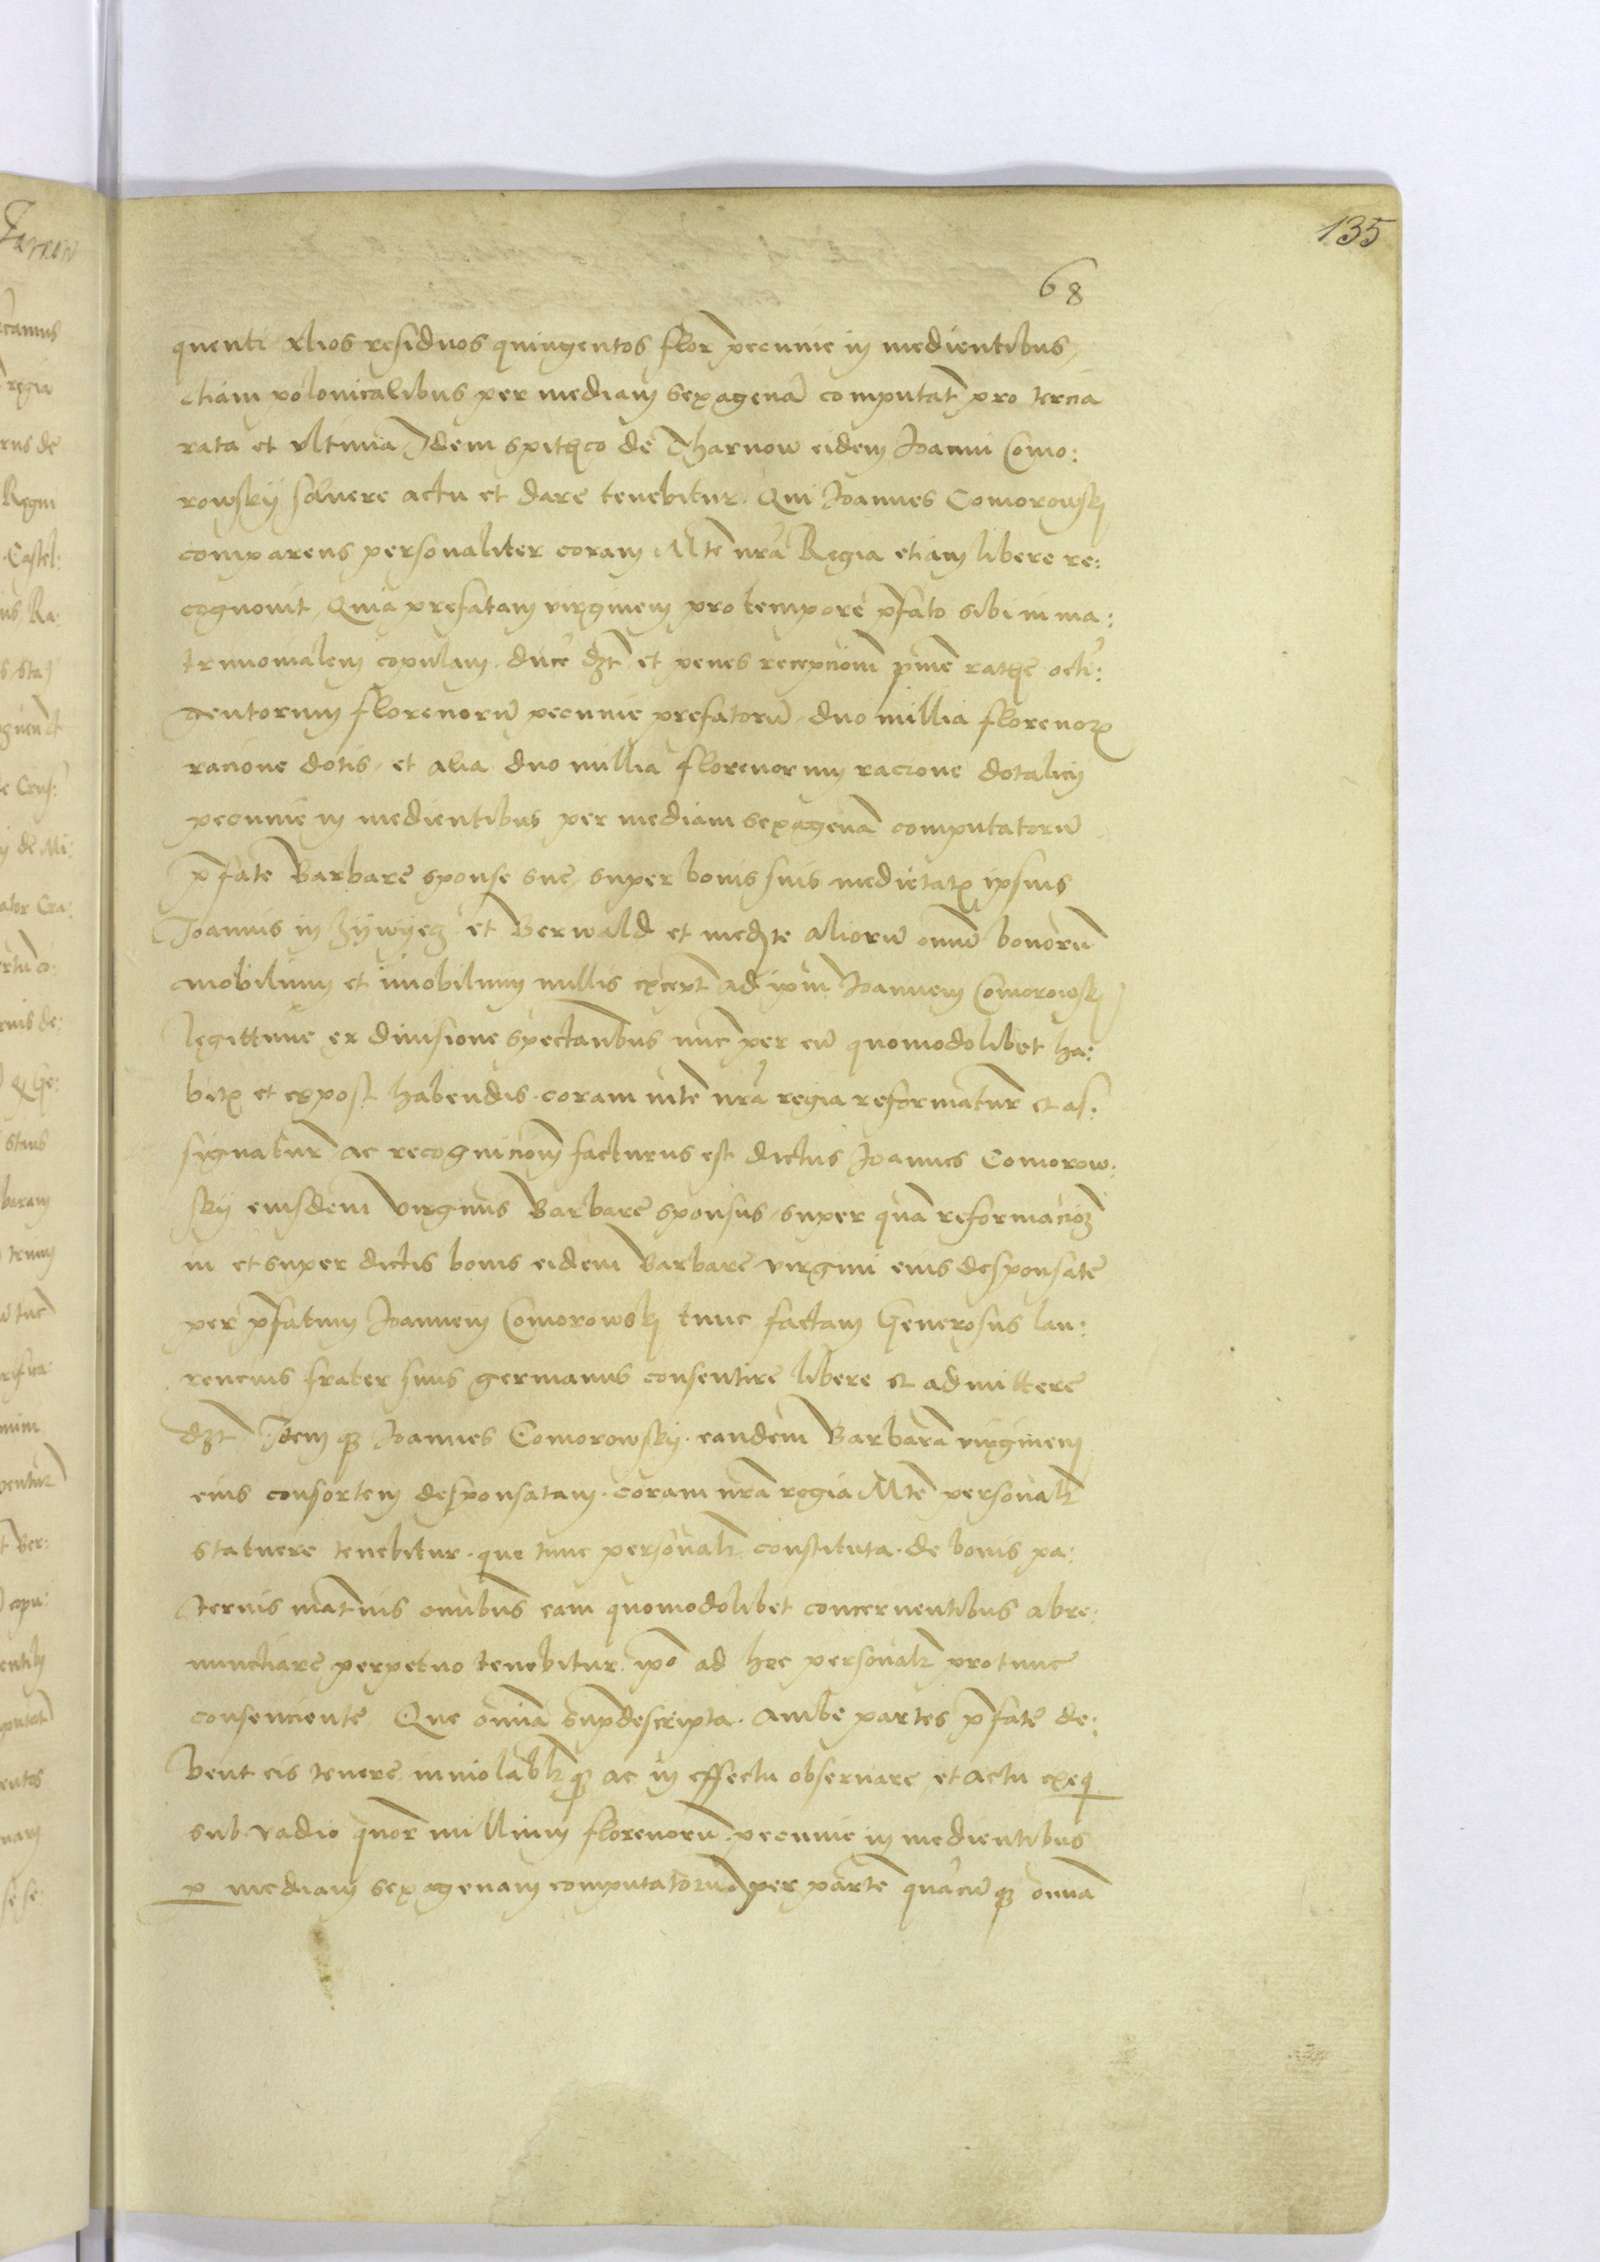 135
68
quenti alios residuos quingentos flor̄ pecunie in medientibus
etiam polonicalibus per mediam sexagenā computat̄ pro tercia
rata et ultima Idem Spithco de Tharnow eidem Joanni Como:
rowskij soluere actu et dare tenebitur. Qui Joannes Comorowskj
comparens personaliter coram Mte nrā Regia etiam libere re:
cognouit, Quia prefatam virginem pro tempore p̄fato sibi in ma:
trimonialem copulam. duce dzt et penes recepcionem pme rathe octi:
gentorum florenorū pecunie prefatorū duo millia florenorꝝ
racione dotis, et alia duo millia florenorum racione dotalicij
pecunie in medientibus per mediam sexagenā computatorū
p̄fate Barbare sponse sue, super bonis suis medietatꝝ ipsius
Joannis in Zijwijecz et Berwald et medte aliorū omnū bonorū
mobilium et imobilium nullis except̄ ad ipm̄ Joannem Comorowskj
legittime ex diuisione spectantibus nunc per eū quomodolibet ha:
bitꝝ et expost habendis. coram mte nrā regia reformatur et as:
signatur ac recognicionem facturus est dictus Joannes Comorow:
skij eiusdem virginis Barbare sponsus, super quā reformacioꝫ
in et super dictis bonis eidem Barbare virgini eius desponsate
per p̄fatum Joannem Comorowskj tunc factam Generosus Lau:
rencius frater suus germanus consentire libere et admittere
dzt Idem qꝫ Joannes Comorowskij. eandem Barbarā virginem
eius consortem desponsatam. coram nrā regia Mte personalr̄
statuere tenebitur. que tunc personalr̄ constituta. de bonis pa:
ternis mat̄nis omnibus eam quomodolibet concernentibus abre:
nunctiare perpetuo tenebitur. ipo ad hec personalr̄ protunc
consenciente Que om̄ia sup̄descripta. ambe partes p̄fate de:
bent eis tenere inuiolablr̄ qꝫ ac in effectu obseruare et actu exeq
sub vadio quor̄ millium florenorū. pecunie in medientibus
p̲ mediam sexagenam computatorū per partē quācū qꝫ om̄ia